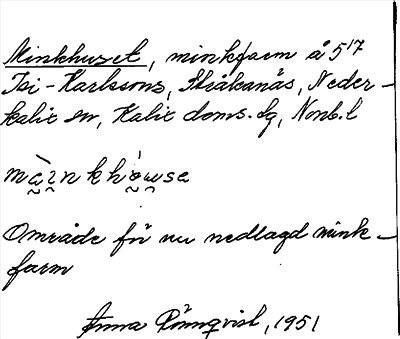 Minkhuset, minkfarm å 5¹⁷
Isi-Karlssons, Stråkanäs, Neder-
kalix sn, Kalix doms. sg, Nonb. l
mὰɪnkhòʉsɐ
Område för nu nedlagd mink-
farm
Anna Rönnqvist, 1951